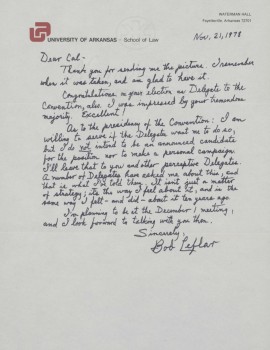 WATERMAN HALL
Fayetteville, Arkansas 72701
UNIVERSITY OF ARKANSAS · School of Law
Nov. 21, 1978
Dear Cal—
Thank you for sending me the picture. I remember
when it was taken, and am glad to have it.
Congratulations on your election as Delegate to the
Convention, also. I was impressed by your tremendous
majority. Excellent!
As to the presidency of the Convention: I am
willing to serve if the Delegates want me to do so,
but I do not intend to be an announced candidate
for the position nor to make a personal campaign.
I'll leave that to you and other perceptive Delegates.
A number of Delegates have asked me about this, and
that is what I've told them. It isn't just a matter
of strategy; it's the way I feel about it, and is the
same way I felt - and did - about it ten years ago.
I'm planning to be at the December 1 meeting,
and I look forward to talking with you then.
Sincerely,
Bob Leflar